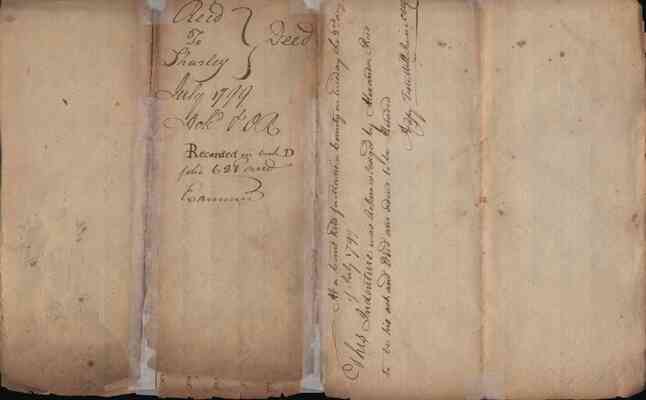 Reid
To
Sharley } Deed
July 1799
Ack.d & O.R.
Recorded in book D
folio 628 and
Examined
At a Court held for Madison County on tuesday the 2 day
of July 1799
This Indenture was acknowledged by Alexander Reid
to be his act and Deed and ordered to be Recorded
Teste Will Irvine